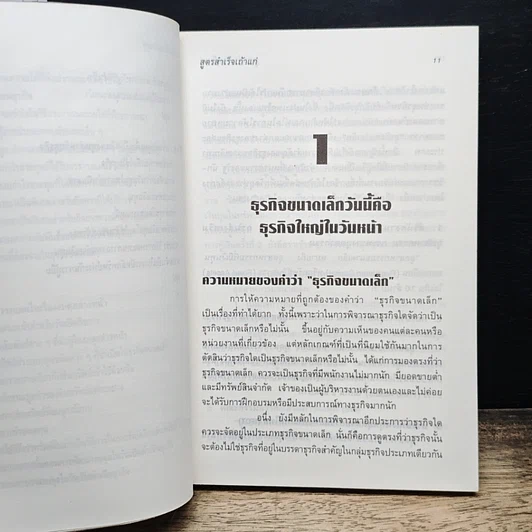 สูตรสำเร็จเถ้าแก่ 11
1
ธุรกิจขนาดเล็กวันนี้คือ
ธุรกิจใหญ่ในวันหน้า
ความหมายของคำว่า "ธุรกิจขนาดเล็ก"
การให้ความหมายที่ถูกต้องของคำว่า "ธุรกิจขนาดเล็ก"
เป็นเรื่องที่ทำได้ยาก ทั้งนี้เพราะว่าในการพิจารณาธุรกิจใดจัดว่าเป็น
ธุรกิจขนาดเล็กหรือไม่นั้น ขึ้นอยู่กับความเห็นของคนแต่ละคนหรือ
หน่วยงานที่เกี่ยวข้อง แต่หลักเกณฑ์ที่เป็นที่นิยมใช้กันมากในการ
ตัดสินว่าธุรกิจใดเป็นธุรกิจขนาดเล็กหรือไม่นั้น ได้แก่การมองตรงที่ว่า
ธุรกิจขนาดเล็ก ควรจะเป็นธุรกิจที่มีพนักงานไม่มากนัก มียอดขายต่ำ
และมีทรัพย์สินจำกัด เจ้าของเป็นผู้บริหารงานด้วยตนเองและไม่ค่อย
จะได้รับการฝึกอบรมหรือมีประสบการณ์ทางธุรกิจมากนัก
อนึ่ง ยังมีหลักในการพิจารณาอีกประการว่าธุรกิจใด
ควรจะจัดอยู่ในประเภทธุรกิจขนาดเล็ก นั่นก็คือการดูตรงที่ว่าธุรกิจนั้น
จะต้องไม่ใช่ธุรกิจที่อยู่ในบรรดาธุรกิจสำคัญในกลุ่มธุรกิจประเภทเดียวกัน